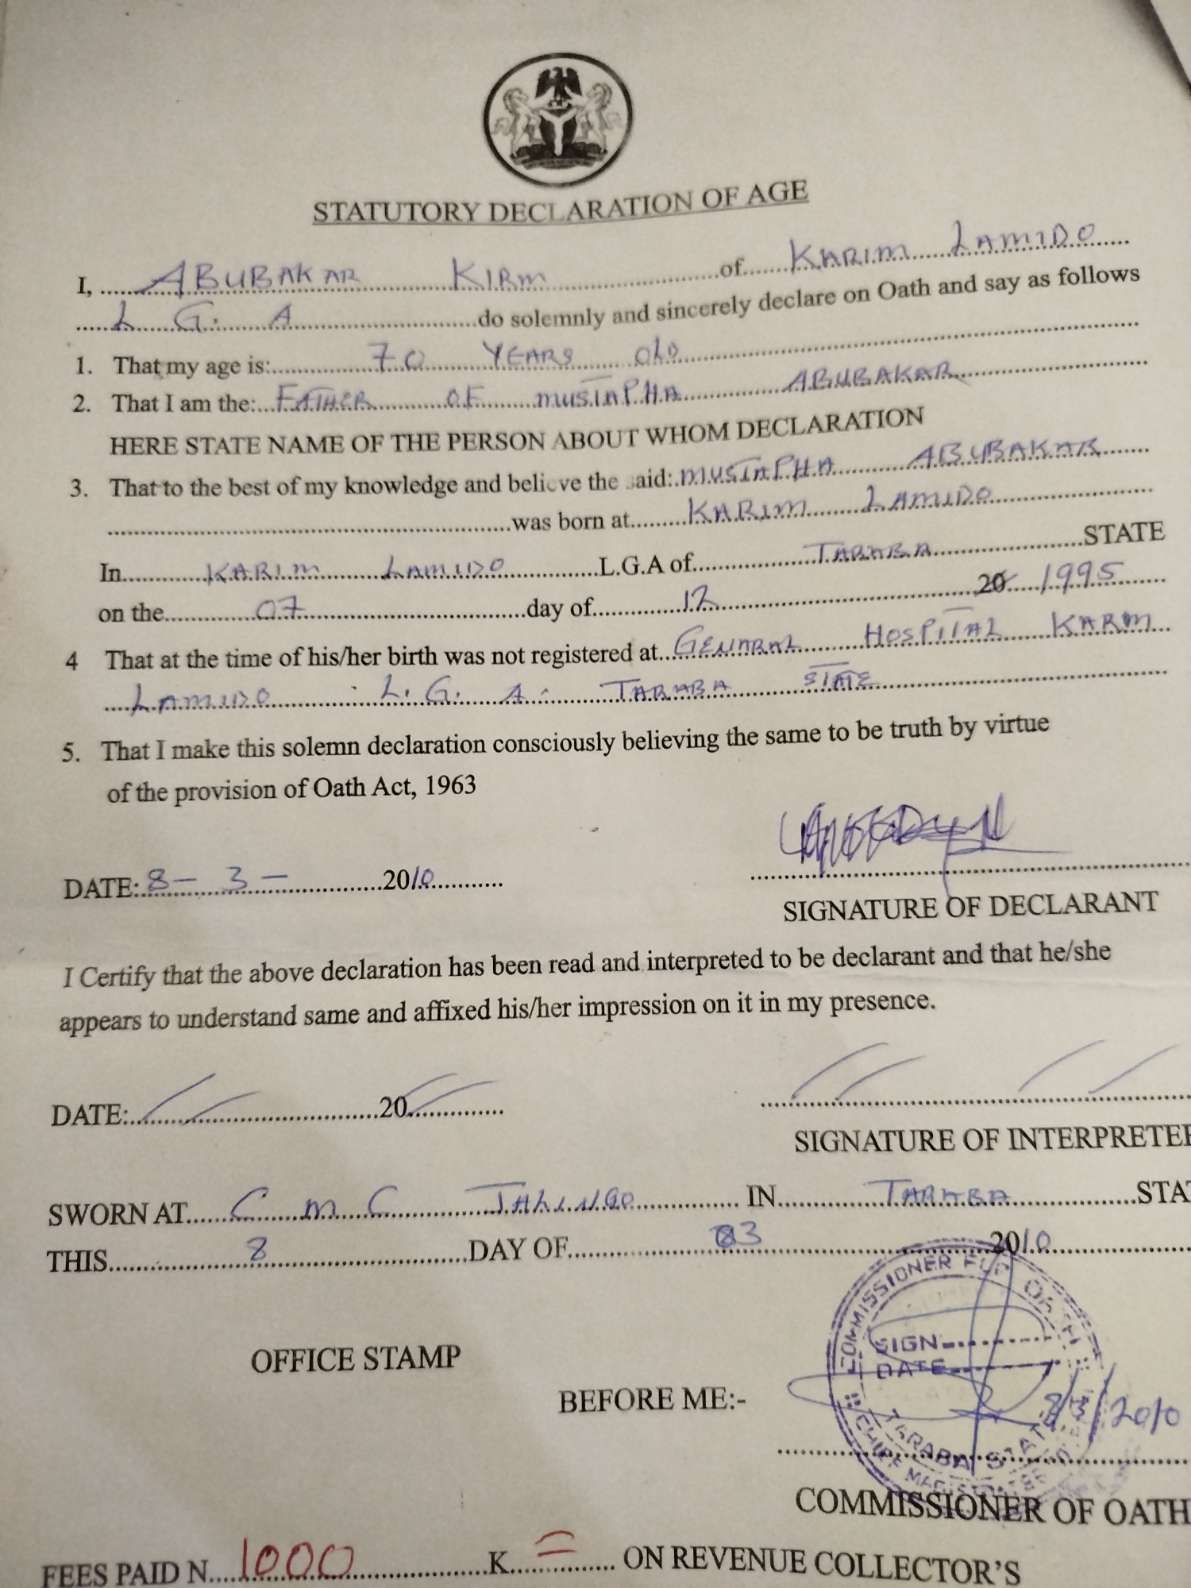 STATUTORY DECLARATION OF AGE
I, ABUBAKAR KIRM of KARIM LAMIDO
L. G. A do solemnly and sincerely declare on Oath and say as follows
1. That my age is: 70 YEARS OLD
2. That I am the: FATHER OF MUSTAPHA ABUBAKAR
HERE STATE NAME OF THE PERSON ABOUT WHOM DECLARATION
3. That to the best of my knowledge and believe the said: MUSTAPHA ABUBAKAR
was born at KARIM LAMIDO
In KARIM LAMIDO L.G.A of TARABA STATE
on the 07 day of 12 20 1995
4 That at the time of his/her birth was not registered at GENARAL HOSPITAL KARM
LAMIDO L. G. A. TARABA STATE
5. That I make this solemn declaration consciously believing the same to be truth by virtue
of the provision of Oath Act, 1963
DATE: 8 - 3 - 2010
SIGNATURE OF DECLARANT
I Certify that the above declaration has been read and interpreted to be declarant and that he/she
appears to understand same and affixed his/her impression on it in my presence.
DATE: 20
SIGNATURE OF INTERPRETER
SWORN AT C M C JALINGO IN TARABA STAT
THIS 8 DAY OF 03 2010
COMMISSIONER FOR OATH
SIGN
DATE
8/3/2010
TARABA STATE
CHIEF MAGISTRATE
OFFICE STAMP
BEFORE ME:-
COMMISSIONER OF OATH
FEES PAID N 1000 K = ON REVENUE COLLECTOR'S